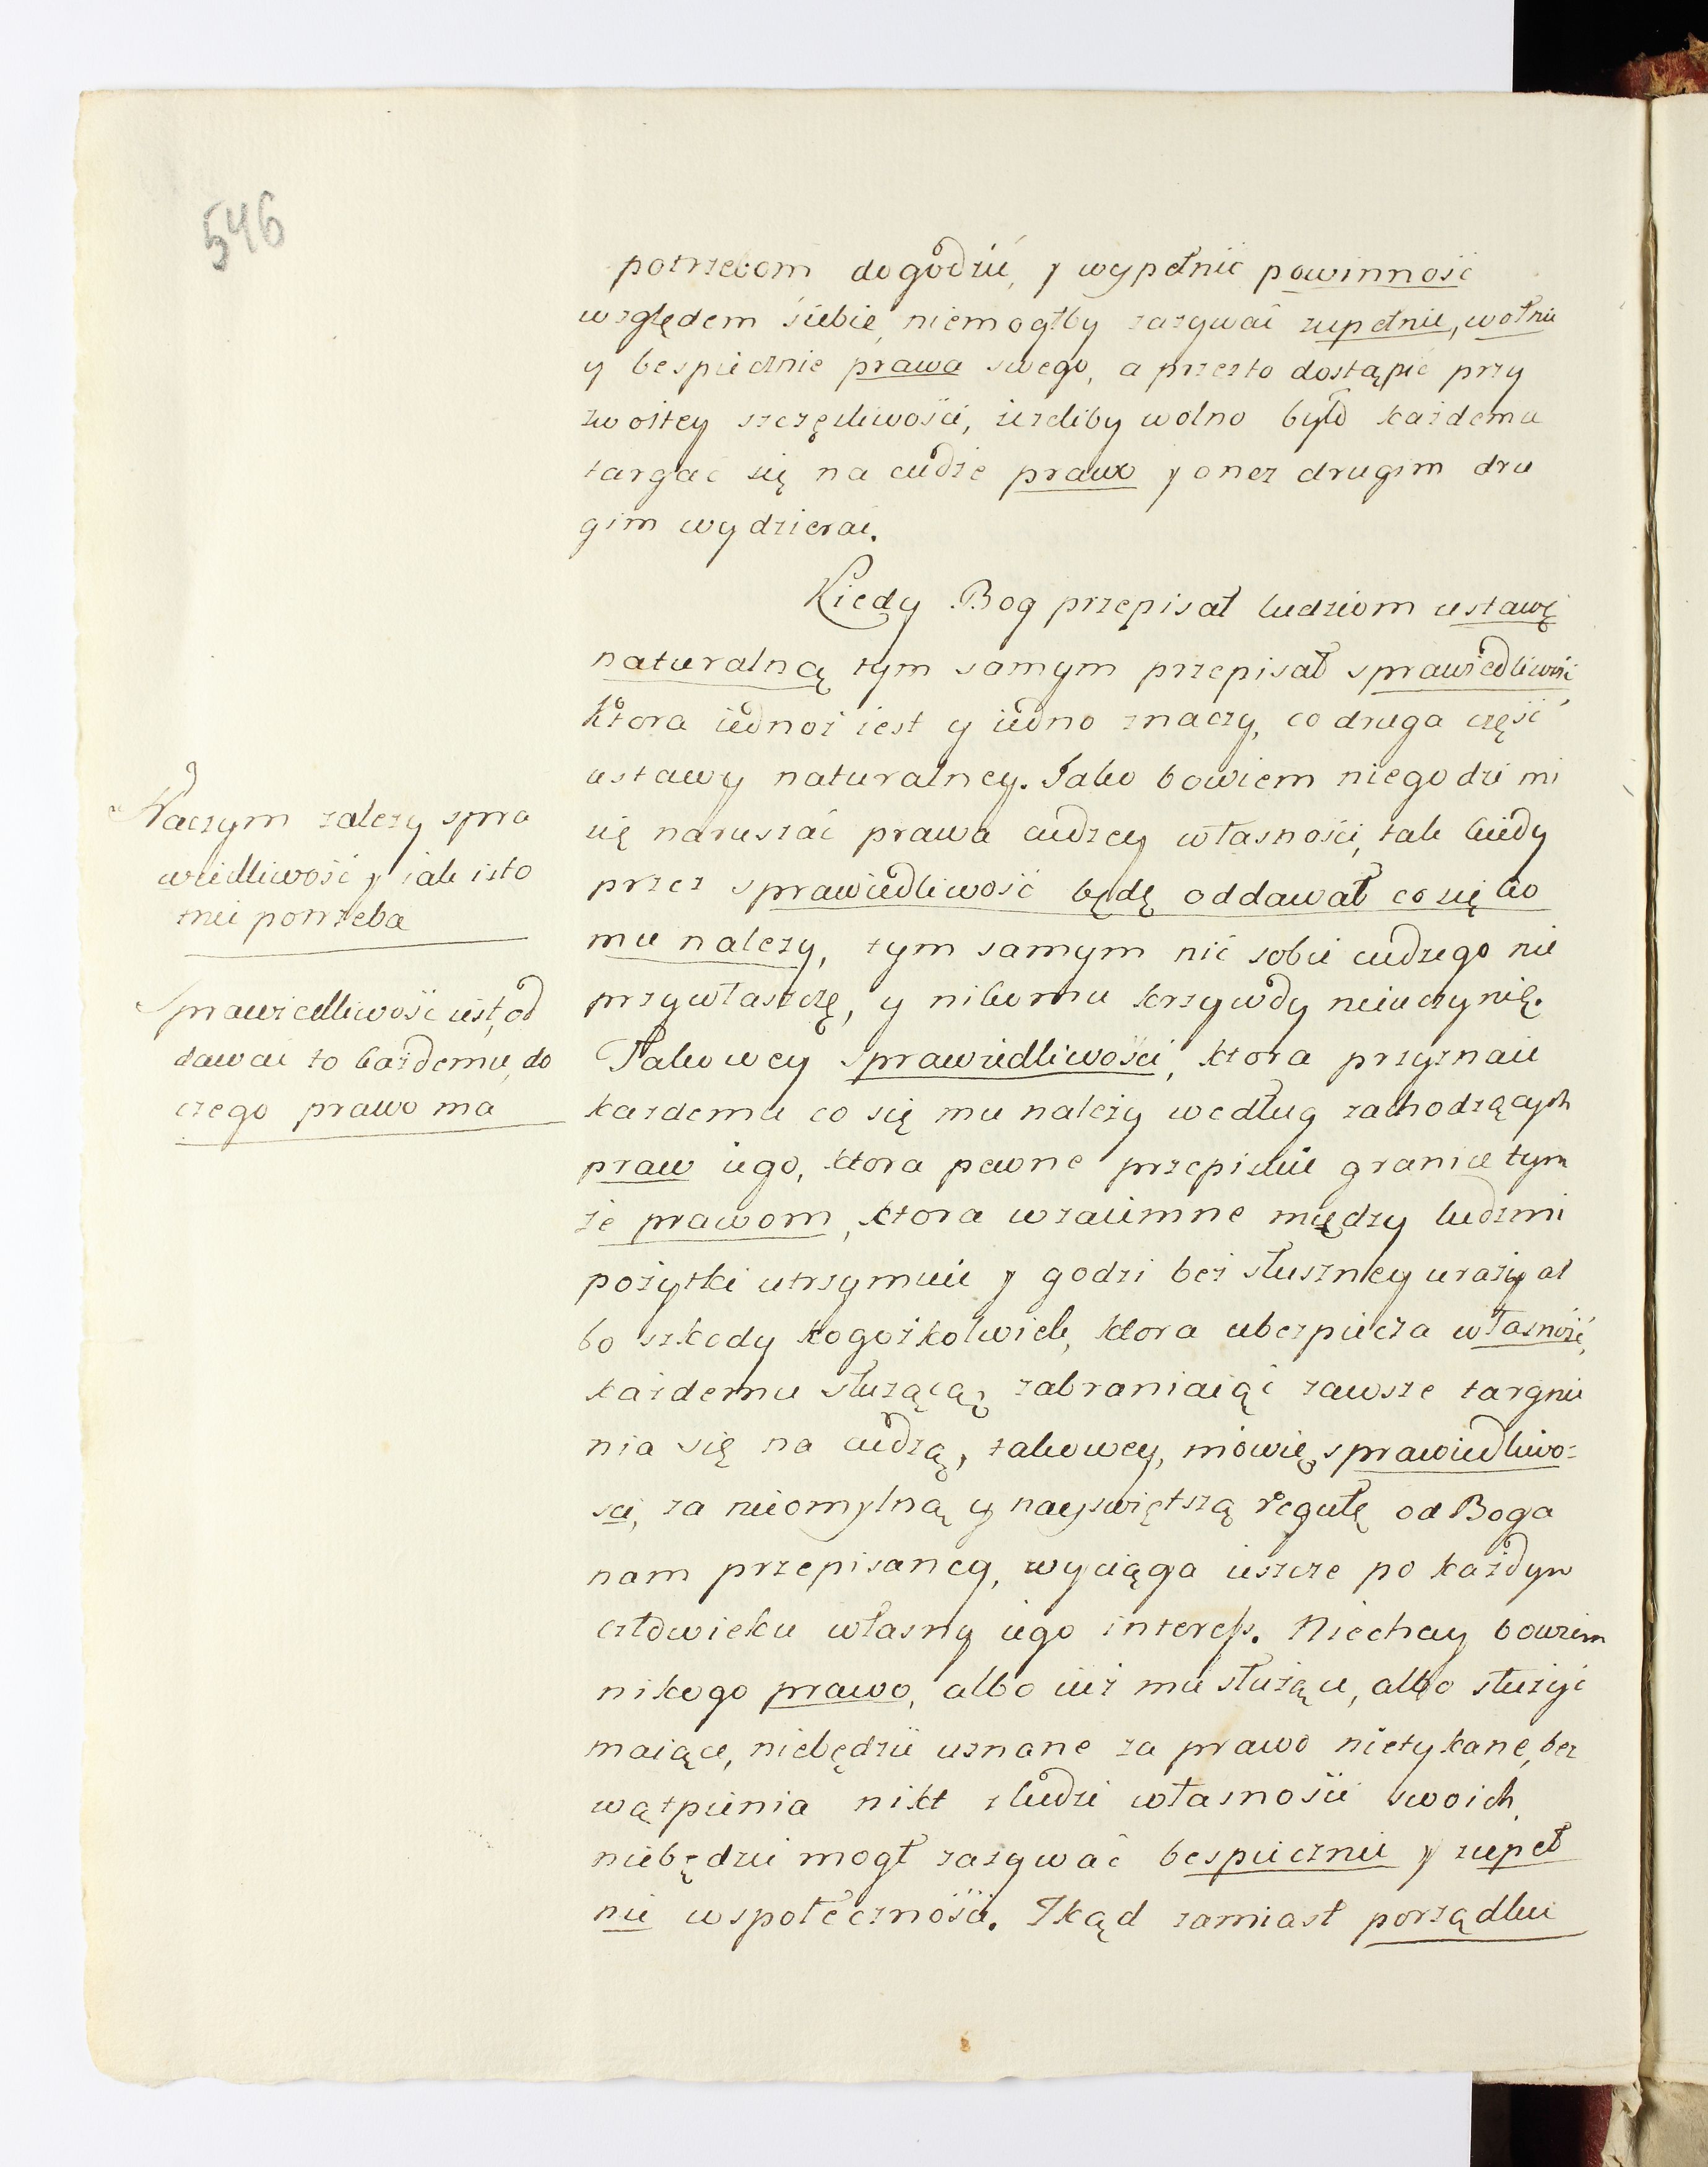 546
potrzebom dogodzić, y wypełnić powinność
względem siebie, niemogłby zażywać zupełnie, wolnie
y bespiecznie prawa swego, a przezto dostąpić przy
zwoitey szczęśliwości, ieżeliby wolno było każdemu
targać się na cudze prawo y onez drugim dru
gim wydzierać.
Kiedy Bog przepisał ludziom ustawę
naturalną tym samym przepisał sprawiedliwość
ktora iednoż iest y iedno znaczy, co druga część
ustawy naturalney. Jako bowiem niegodzi mi
się naruszać prawa cudzey własności, tak kiedy
przez sprawiedliwość będę oddawał co się ko
mu należy, tym samym nic sobie cudzego nie
przywłaszczę, y nikomu krzywdy nieuczynię.
Takowey sprawiedliwości, ktora przyznaie
kazdemu co się mu należy według zachodzących
praw iego, ktora pewne przepisuie granice tym
że prawom, ktora wzaiemne między ludzmi
pożytki utrzymuie y godzi bez słuszney urazy al
bo szkody kogożkolwiek, ktora ubezpiecza własność,
każdemu służącą, zabraniaiąc zawsze targnie
nia się na cudzą, takowey, mowię, sprawiedliwo=
sci, za nieomylną y nayswiętszą regułę od Boga
nam przepisaney, wyciąga ieszcze po każdym
człowieku własny iego interess. Niechay bowiem
nikogo prawo, albo iuż mu służące, albo służyć
maiące, niebędzie uznane za prawo nietykane, bez
wątpienia nikt z ludzi własności swoich,
niebędzie mogł zażywać bespiecznie y zupeł
nie wspołeczności. Zkąd zamiast porządku
Naczym zalezy spra
wiedliwość y iak isto
tnie potrzeba
Sprawiedliwość iest, od
dawać to każdemu, do
czego prawo ma